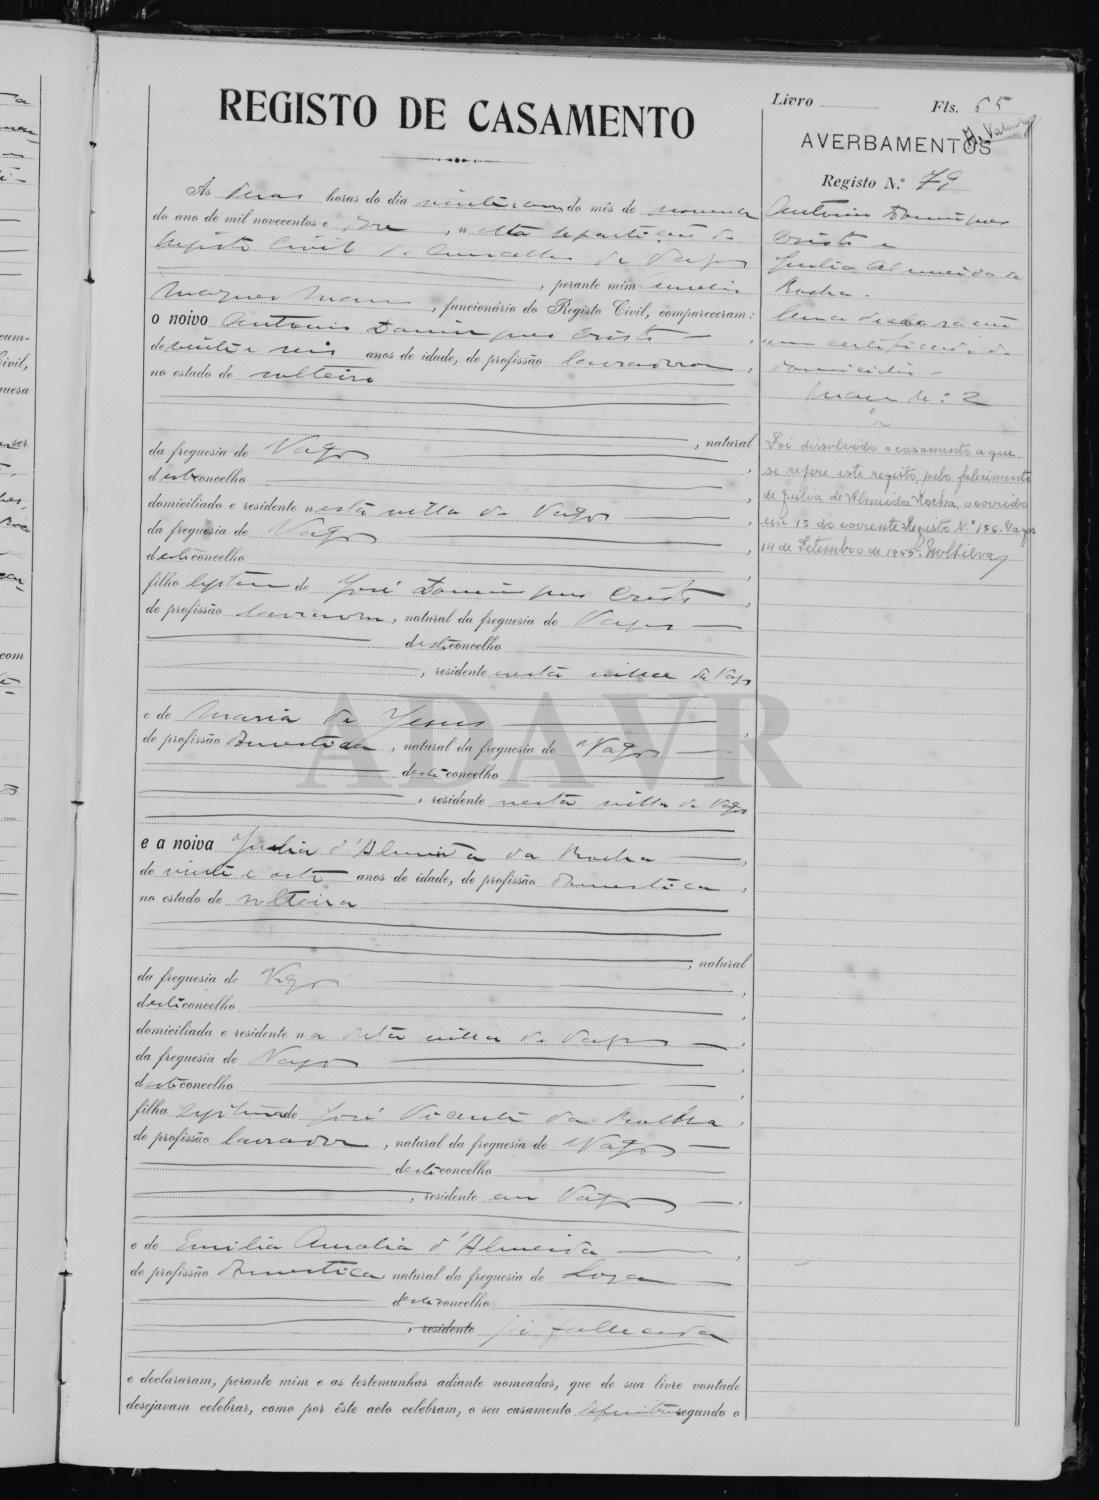 REGISTO DE CASAMENTO
Livro Fls. 65
AVERBAMENTOS
Registo N.º 79
Às horas do dia vinte e um do mês de novembro
do ano de mil novecentos e , nesta repartição do
Registo Civil do Concelho de Vagos
, perante mim Amelio
Marques Mano , funcionário do Registo Civil, compareceram:
o noivo Antonio Domingues Cristo
de vinte e seis anos de idade, de profissão lavrador ,
no estado de solteiro
, natural
da freguesia de Vagos ,
deste concelho ,
domiciliado e residente nesta villa de Vagos ,
da freguesia de Vagos ,
deste concelho ,
filho legitimo de José Domingues Cristo ,
de profissão lavrador , natural da freguesia de Vagos
deste concelho
, residente nesta villa de Vagos
e de Maria de Jesus ,
de profissão domestica , natural da freguesia de Vagos
deste concelho
, residente nesta villa de Vagos
e a noiva Julia d'Almeida da Rocha ,
de vinte e oito anos de idade, de profissão domestica ,
no estado de solteira
, natural
da freguesia de Vagos ,
deste concelho ,
domiciliada e residente n villa de Vagos ,
da freguesia de Vagos ,
deste concelho ,
filha legitima de José Vicente da Rocha ,
de profissão lavrador , natural da freguesia de Vagos
deste concelho
, residente em Vagos ,
e de Emilia Amalia d'Almeida ,
de profissão domestica natural da freguesia de Soza
deste concelho
, residente já fallecida
e declararam, perante mim e as testemunhas adiante nomeadas, que de sua livre vontade
desejavam celebrar, como por êste acto celebram, o seu casamento definitivo segundo o
Antonio Domingues
Cristo e
Julia Almeida da
Rocha.
Uma declaração
um certificado de
domicilio
Maço N.º 2
Foi dissolvido o casamento a que
se refere este registo, pelo falecimento
de Julia de Almeida Rocha, ocorrido
em 13 do corrente. Registo N.º 136. Vagos
14 de Setembro de 1955.
ADAVR